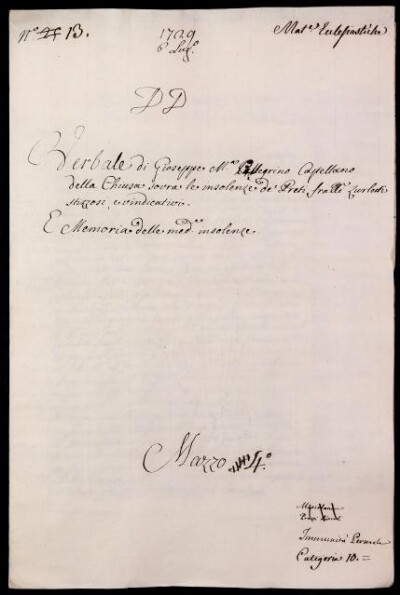 N.º 13.
1729
6 Lug.º
Mat.e Eclesiastiche
D D
Verbale di Giuseppe M.ª Pellegrino Castellano
della Chiusa sovra le insolenze de' Preti fratt.
stizzosi, e vindicativi.
E Memoria delle med.me insolenze
Mazzo 4.º
Immunità
Categoria 10. =